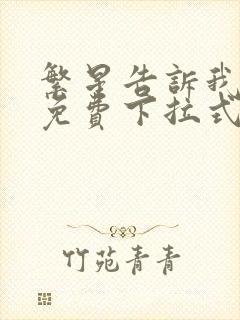 繁星告訴我
免費下拉式
竹苑青青